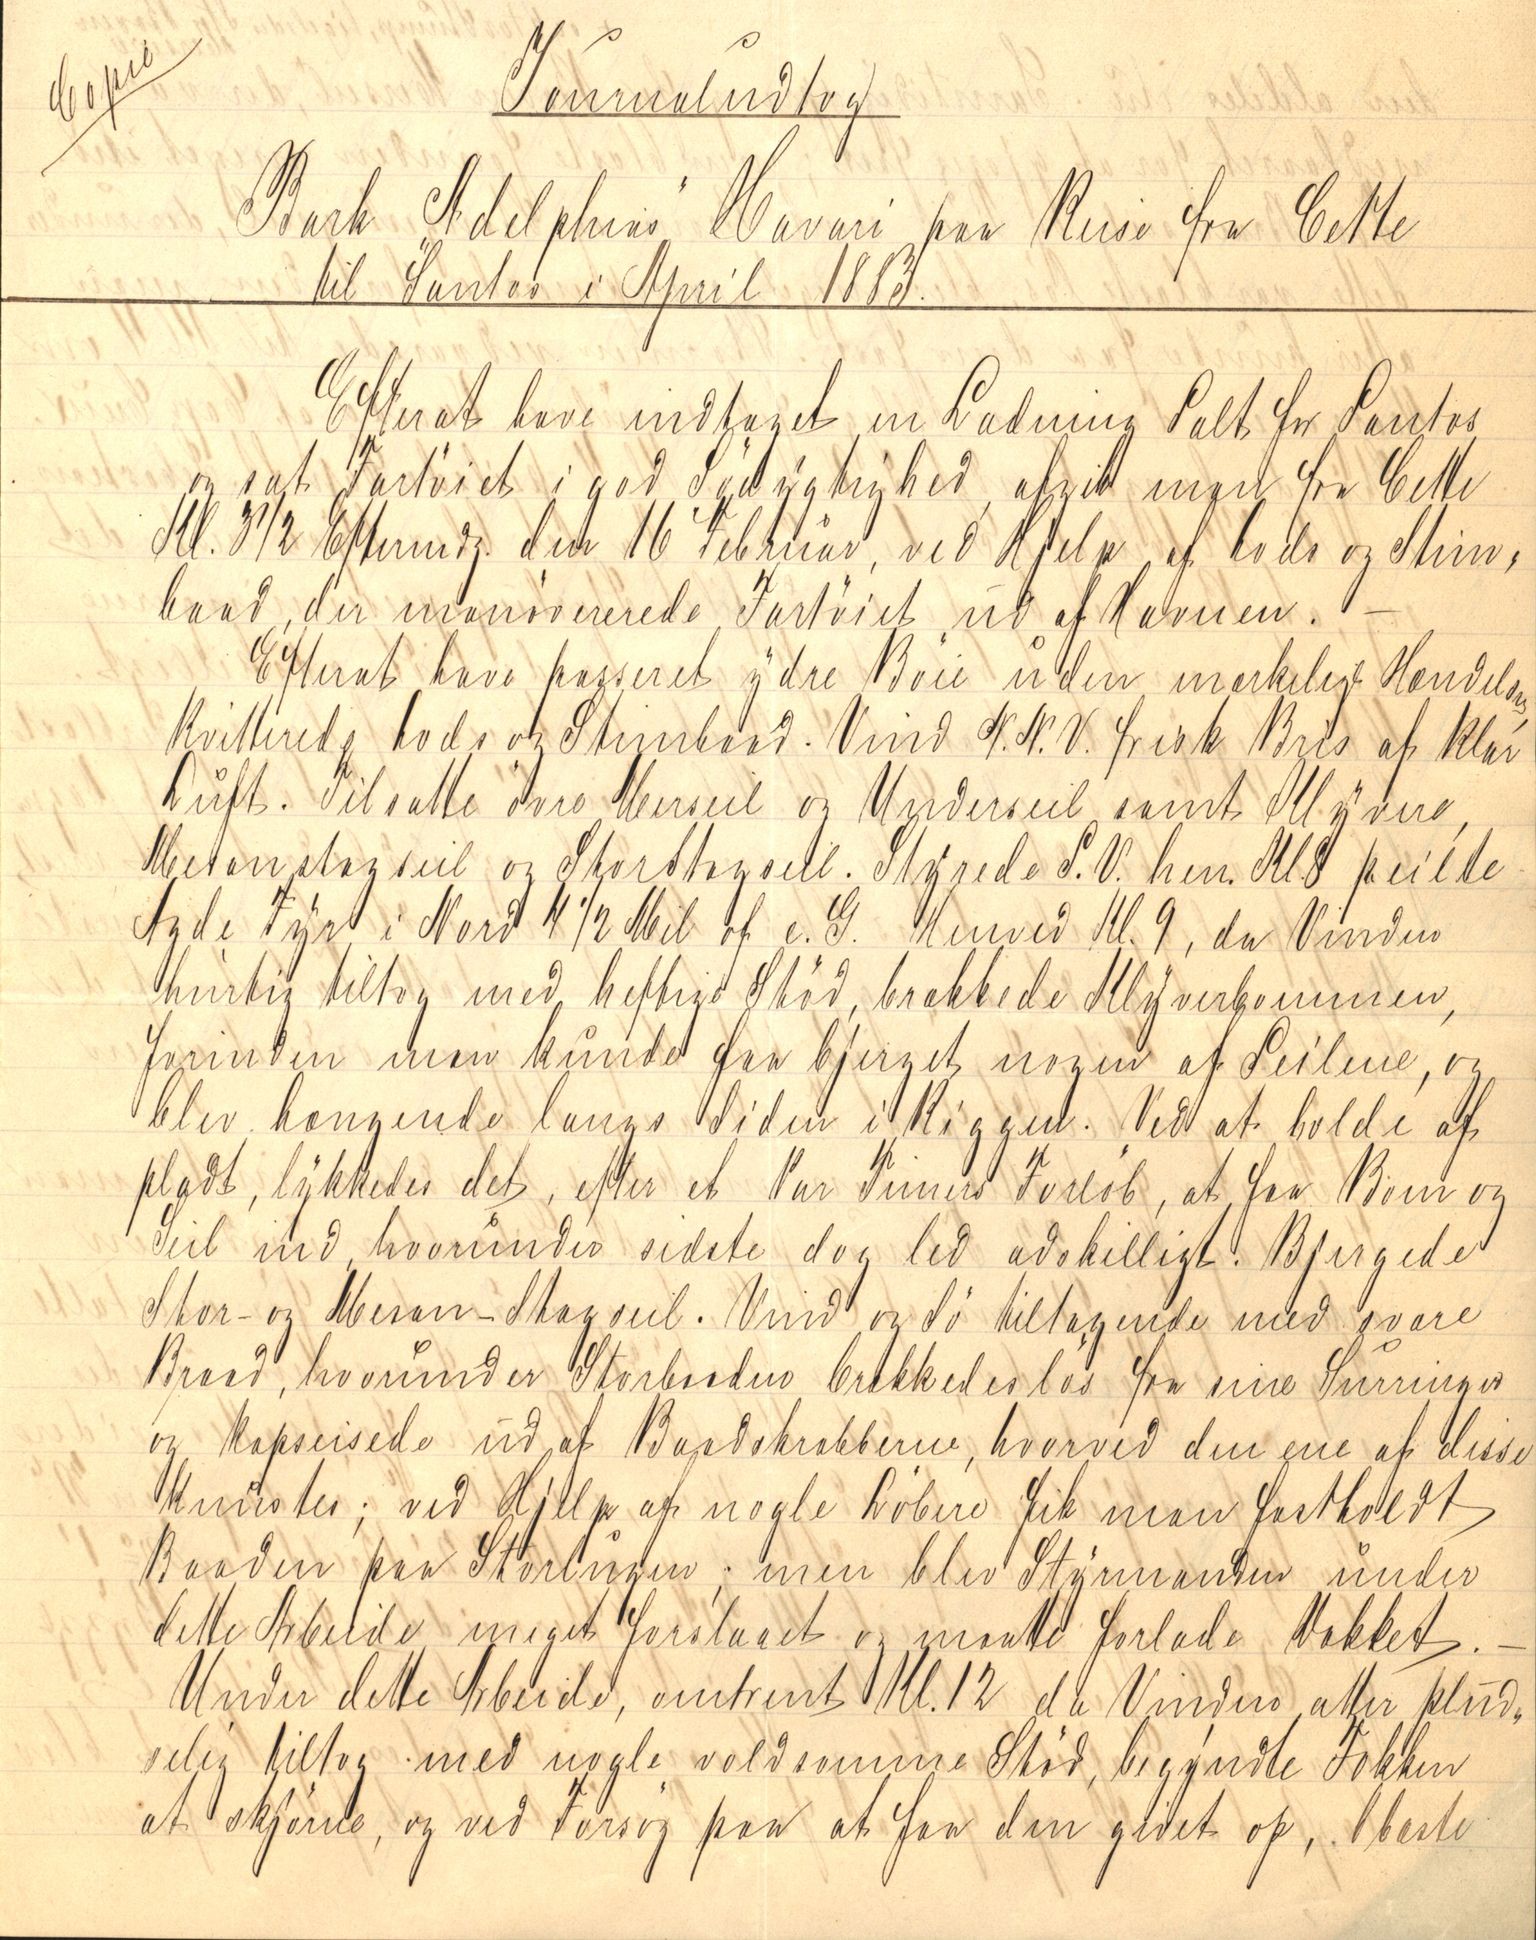 Copie
Journaludtog
Bark "Adelphias" Havari paa Reise fra Cette
til Santos i April 1883.
Efterat have indtaget en Ladning Salt for Santos
og sat Fartöiet i god Södygtighed, afgik man fra Cette
Kl. 3 1/2 Eftermdg. den 16 Februar, ved Hjelp af Lods og Stim-
baad, der manövererede Fartöiet ud af Havnen. —
Efterat have passeret ydre Böie uden merkelig Hændelse,
kvitterede Lods og Stimbaad. Vind N.N.V. frisk Bris af klar
Luft. Tilsatte övre Merseil og Underseil samt Klyvere,
Mesanstagseil og Storstagseil. Styrede S.V. hen. Kl 8 peilte
Agde Fyr i Nord 4 1/2 Mil af e. G. Henved Kl. 9, da Vinden
hurtig tiltog med heftige Stöd, brækkede Klyverbommen,
forinden man kunde faa bjerget nogen af Seilene, og
blev hængende langs Siden i Riggen. Ved at holde af
pladt, lykkedes det, efter et Par Timers Forlöb, at faa Bom og
Seil ind, hvorunder sidste dog led adskilligt. Bjergede
Stor- og Mesan-Stagseil. Vind og Sö tiltagende med svare
Braad, hvorunder Storbaaden brækkedes lös fra sine Surringer
og kapseisede ud af Baadskrabberne, hvorved den ene af disse
knustes; ved Hjelp af nogle Löbere fik man fastholdt
Baaden paa Storlugen; men blev Styrmanden under
dette Arbeide meget forslaaet og maatte forlade Dækket. —
Under dette Arbeide, omtrent Kl. 12 da Vinden atter plud-
selig tiltog med nogle voldsomme Stöd, begyndte Fokken
at skjörne, og ved Forsög paa at faa den givet op, blæste